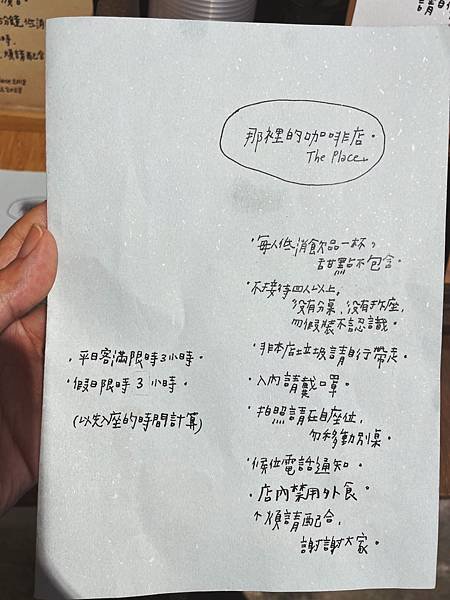 那裡的咖啡店。
The Place
·每人低消飲品一杯,
甜點不包含。
·不接待四人以上。
沒有分桌、沒有拆座,
勿假裝不認識。
·非本店垃圾請自行帶走。
·入內請戴口罩。
·拍照請在自座位,
勿移動別桌。
·候位電話通知。
·店內禁用外食。
煩請配合,
謝謝大家。
·平日客滿限時3小時。
·假日限時 3 小時。
(以入座的時間計算)